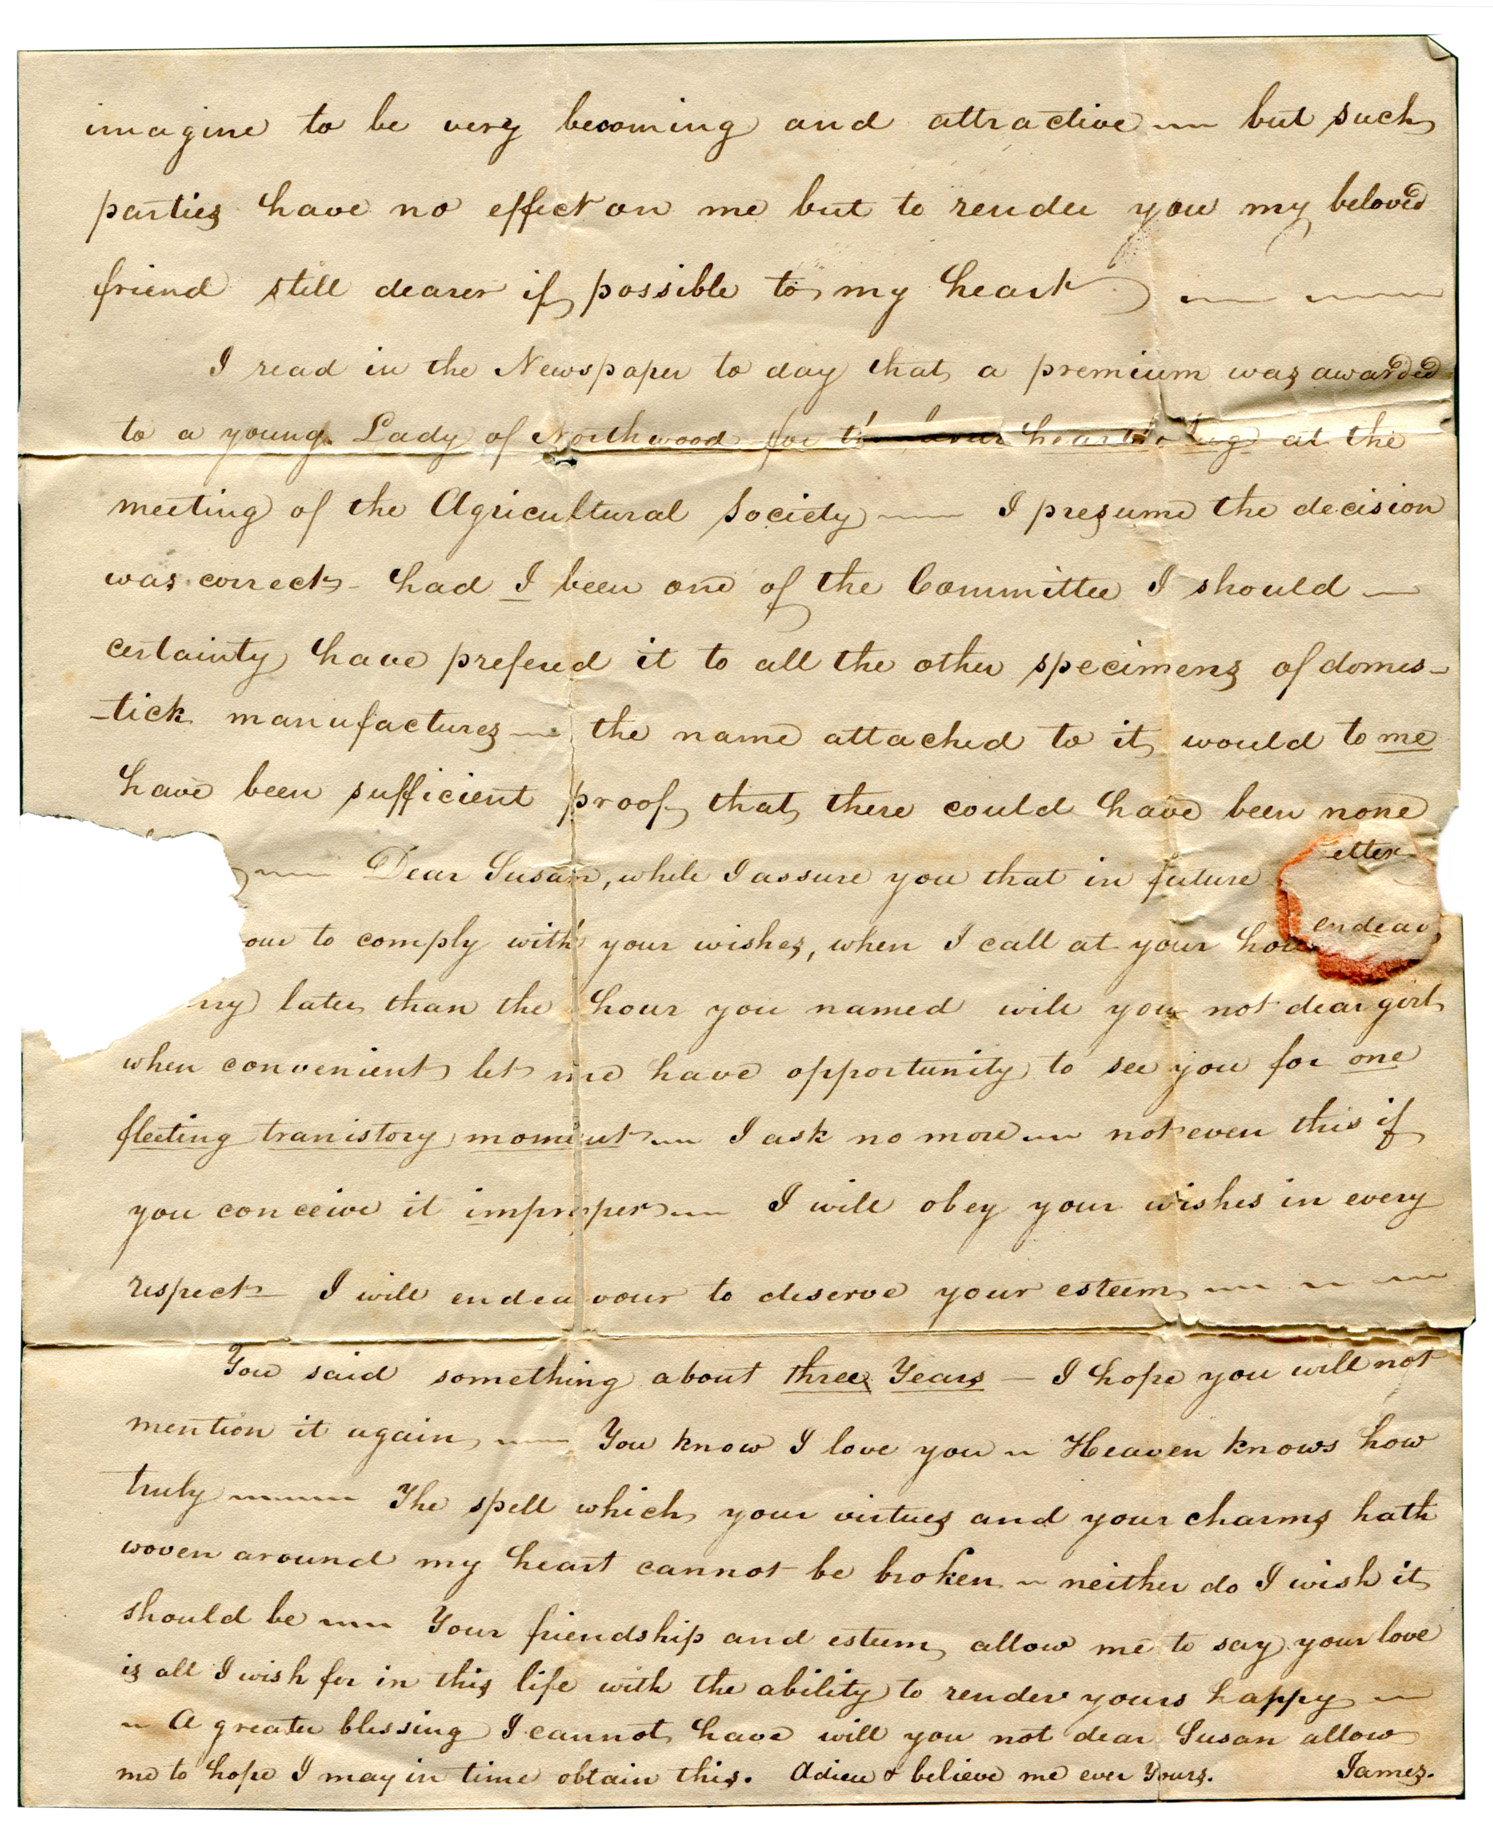 imagine to be very becoming and attractive — but such
parties have no effect on me but to render you my beloved
friend still dearer if possible to my heart — —
I read in the Newspaper to day that a premium was awarded
to a young Lady of Northwood for hearth rug at the
meeting of the Agricultural Society — I presume the decision
was correct - had I been one of the Committee I should —
certainty have prefered it to all the other specimens of domes-
-tick manufactures — the name attached to it would to me
have been sufficient proof that there could have been none
— Dear Susan, while I assure you that in future etter
our to comply with your wishes, when I call at your hou endeav
ny later than the hour you named will you not dear girl
when convenient let me have opportunity to see you for one
fleeting tranistory moment — I ask no more — not even this if
you conceive it improper — I will obey your wishes in every
respect — I will endeavour to deserve your esteem — — —
You said something about three Years — I hope you will not
mention it again — You know I love you — Heaven knows how
truly — The spell which your virtues and your charms hath
woven around my heart cannot be broken — neither do I wish it
should be — Your friendship and esteem, allow me to say your love
is all I wish for in this life with the ability to render yours happy —
— A greater blessing I cannot have will you not dear Susan allow
me to hope I may in time obtain this. Adieu & believe me ever Yours. James.